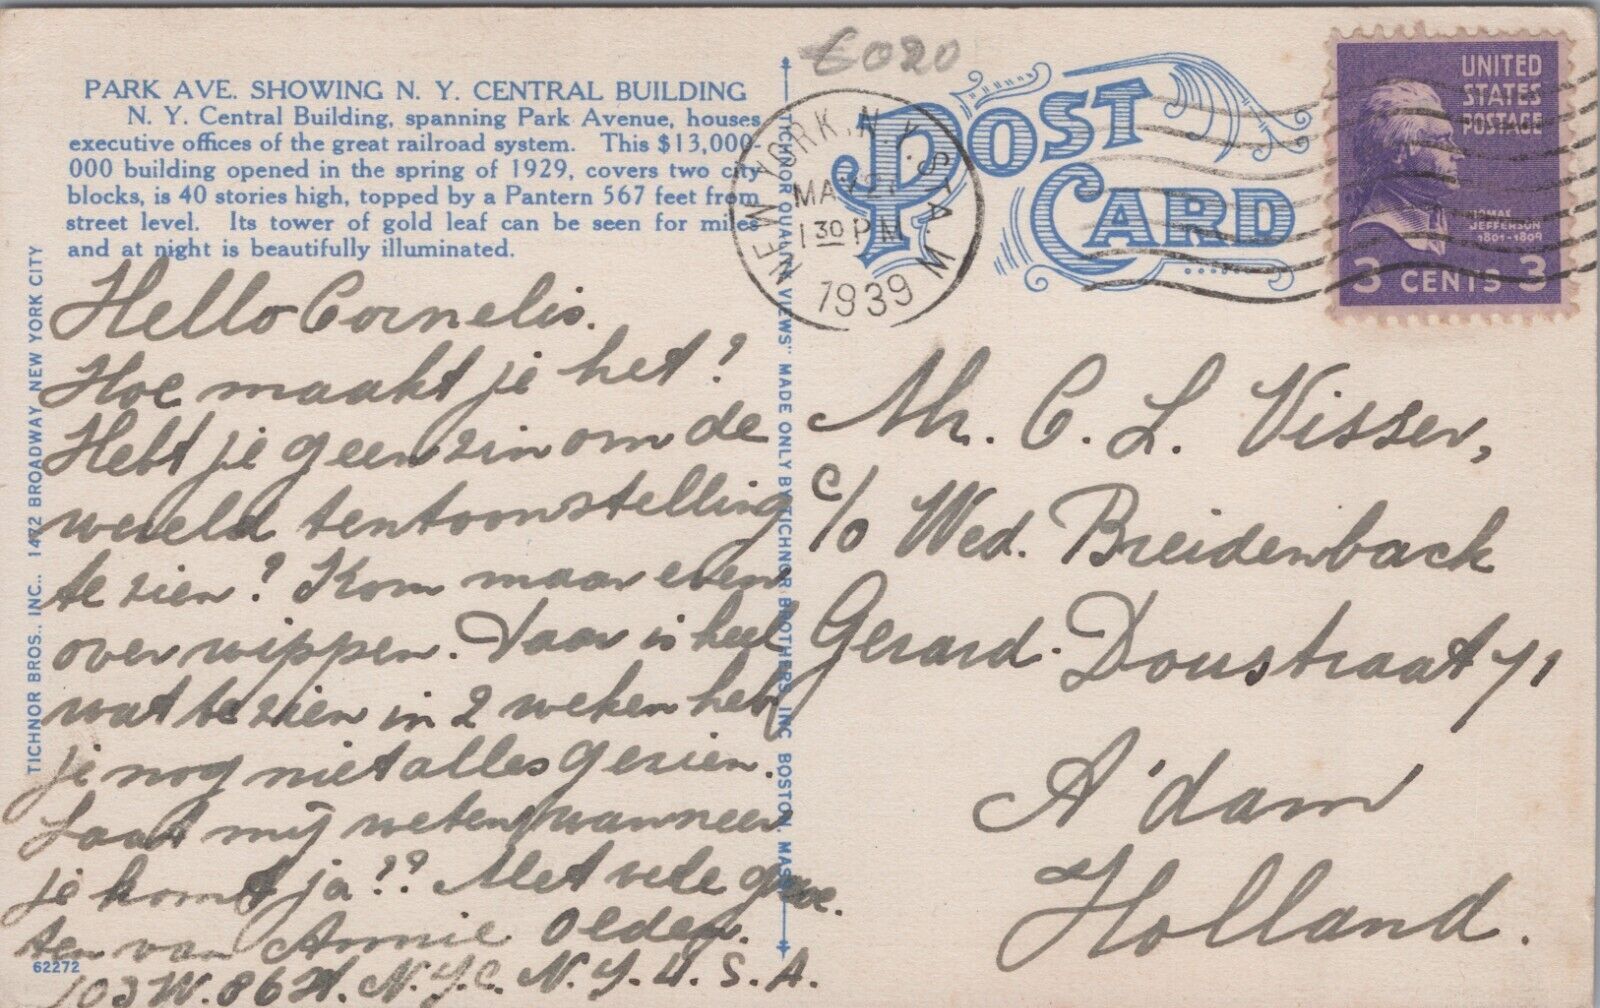 PARK AVE. SHOWING N. Y. CENTRAL BUILDING
N. Y. Central Building, spanning Park Avenue, houses
executive offices of the great railroad system. This $13,000-
000 building opened in the spring of 1929, covers two city
blocks, is 40 stories high, topped by a Pantern 567 feet from
street level. Its tower of gold leaf can be seen for miles
and at night is beautifully illuminated.
Hello Cornelis.
Hoe maakt je het?
Hebt je geen zin om de
wereld tentoonstelling
te zien? Kom maar even
over wippen. Daar is heel
wat te zien in 2 weken heb
je nog niet alles gezien.
Laat mij weten wanneer
je komt ja?? Met vele groe
ten van Annie Olden.
103 W. 86 St. N.Y.C. N.Y. U.S.A.
62272
TICHNOR BROS., INC., 1472 BROADWAY NEW YORK CITY
"TICHNOR QUALITY VIEWS" MADE ONLY BY TICHNOR BROTHERS, INC BOSTON, MASS.
6020
POST
CARD
NEW YORK, N.Y. STA. W
1 30 PM
1939
UNITED
STATES
POSTAGE
THOMAS
JEFFERSON
1801-1809
3 CENTS 3
Mr. C. L. Visser,
c/o Wed. Breidenback
Gerard. Doustraat 71
A'dam
Holland.